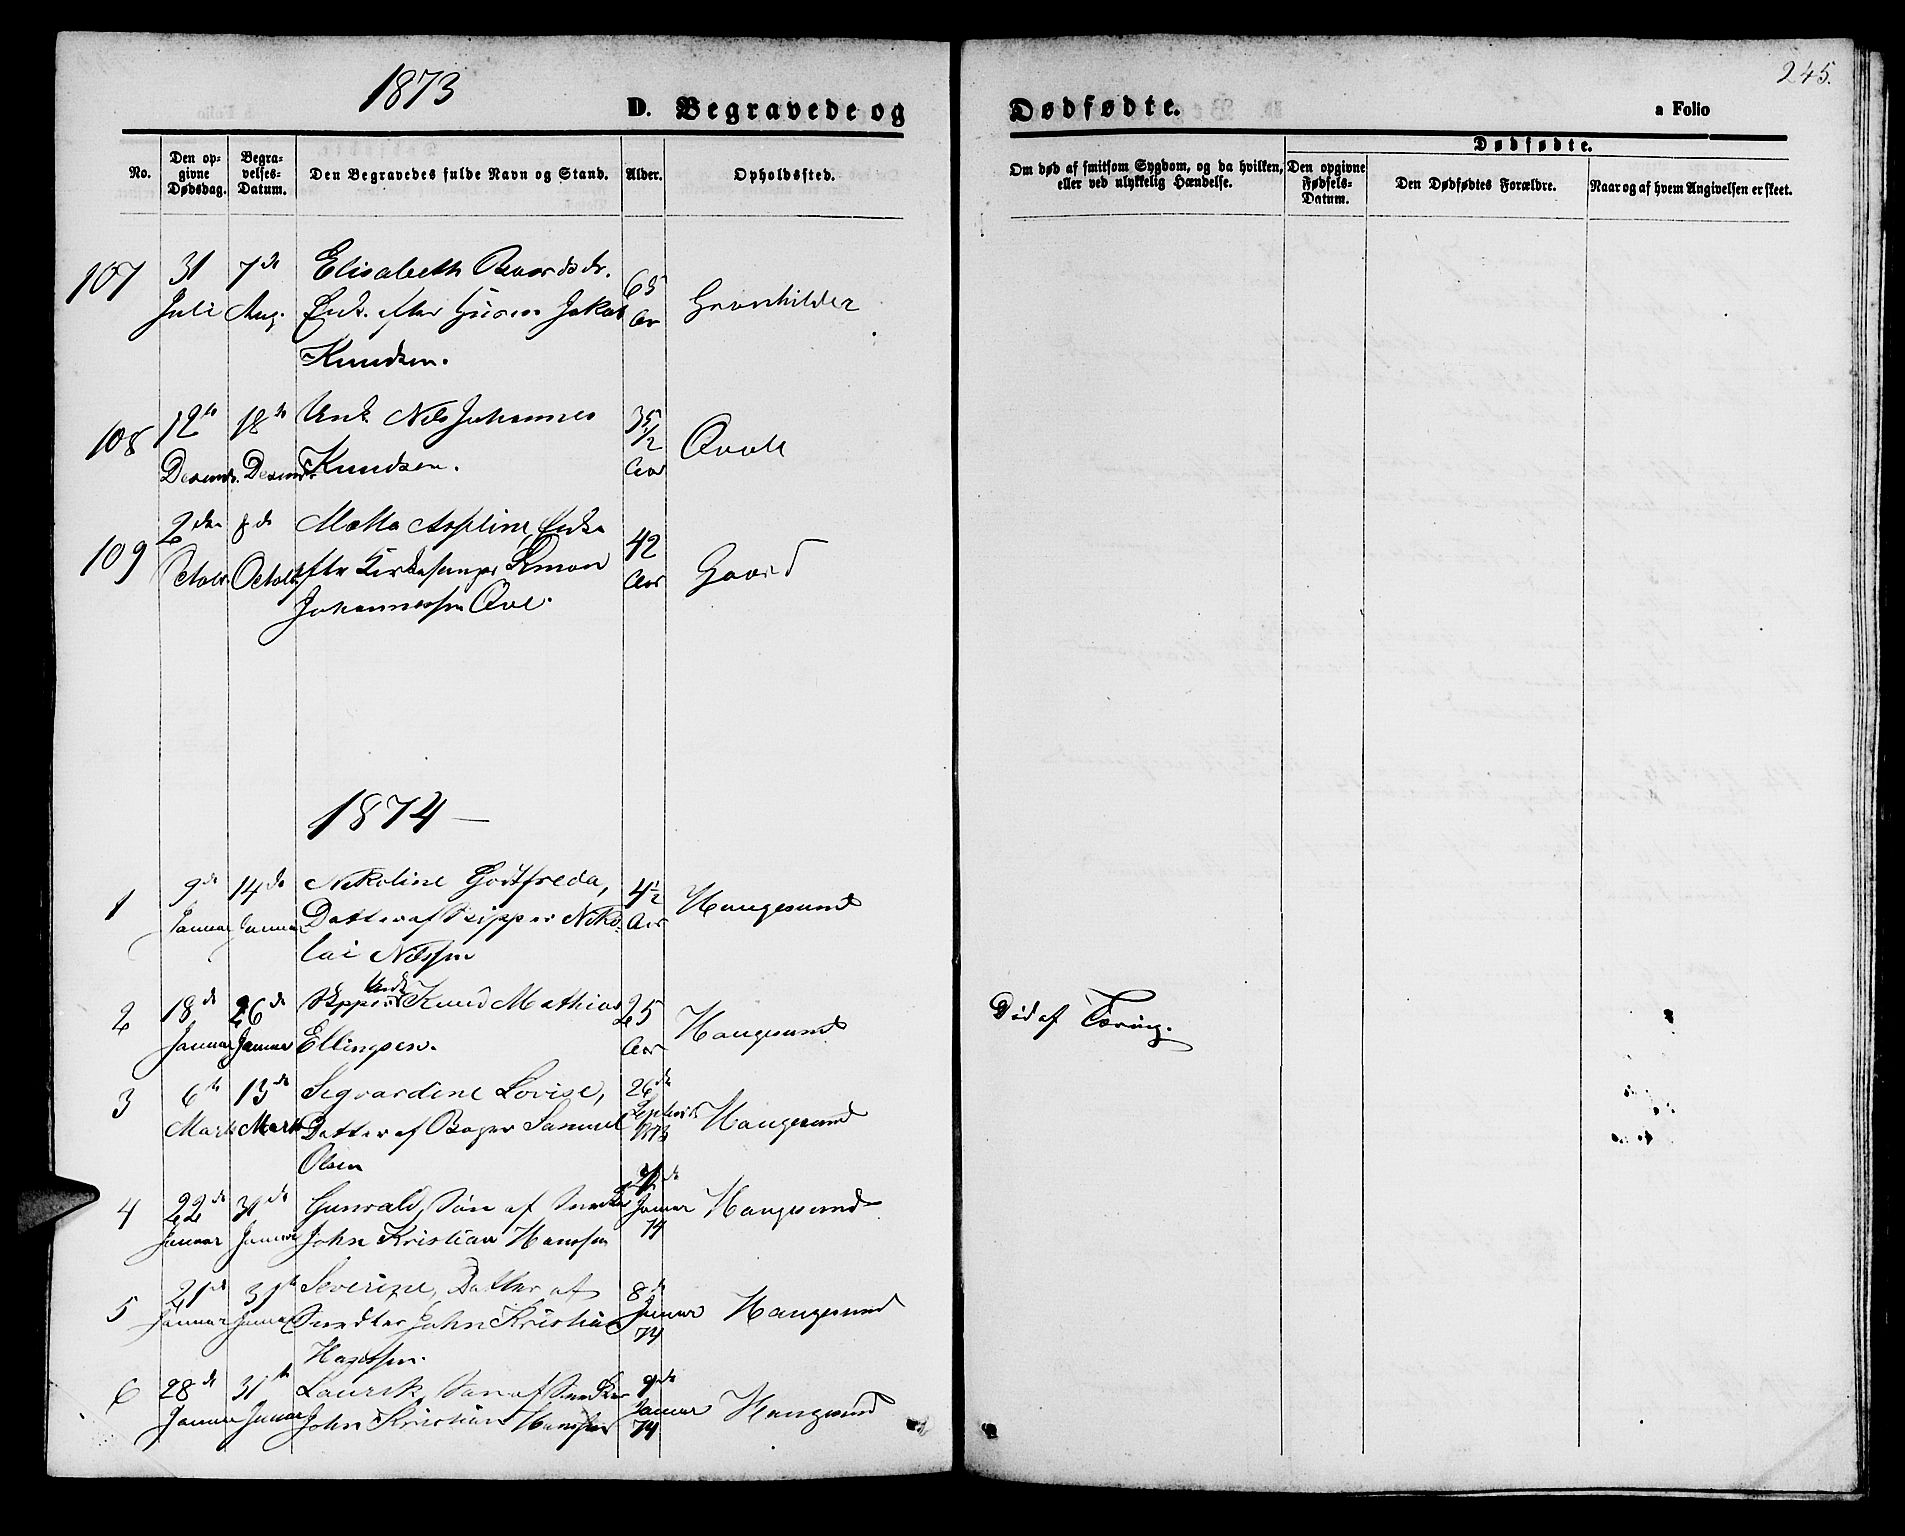 1873
245.
D. Begravede og
Dødfødte.
a Folio
No.
Den op-
givne
Dødsdag.
Begra-
velses-
Datum.
Den Begravedes fulde Navn og Stand.
Alder.
Opholdssted.
Om død af smitsom Sygdom, og da hvilken,
eller ved ulykkelig Hændelse.
Dødfødte.
Den opgivne
Fødsels-
Datum.
Den Dødfødtes Forældre.
Naar og af hvem Angivelsen er skeet.
107 31 7de Elisabeth Baardsdr. 65
Juli Aug. Enk. efter Huusm Jakob Aar Grønhilder
Knudsen.
108 12te 18de Unk. Nils Johannes 35 1/2
Desembr. Desembr Knudsen. Aar
109 2den 8de Enke 42
Octobr. Octobr. eftr Kirkesanger Simon Aar Gaard
Johannessen
1874
1 9de 14de Nikoline Godtfreda, 4 1/2 Haugesund
Januar Januar Datter af Skipper Niko- Aar
lai Nilssen
Unk
2 18de 26de Skipper Knud Mathias 25 Haugesund
Januar Januar Ellingsen. Aar
Død af Tæring.
3 6te 13de Segvardine Lovise, 26de
Marts Marts Datter af Bager Samuel Septembr Haugesund
Olsen
4 22de 31de Gunvald, Søn af Snedker Haugesund
Januar Januar John Kristian Hanssen Januar
74
5 21de 31te Severine, Datter af 8de
Januar Januar Snedker John Kristian Januar Haugesund
Hanssen. 74
6 28de 31te Laurik, Søn af Snedker 9de
Januar Januar John Kristian Hanssen Januar Haugesund
74